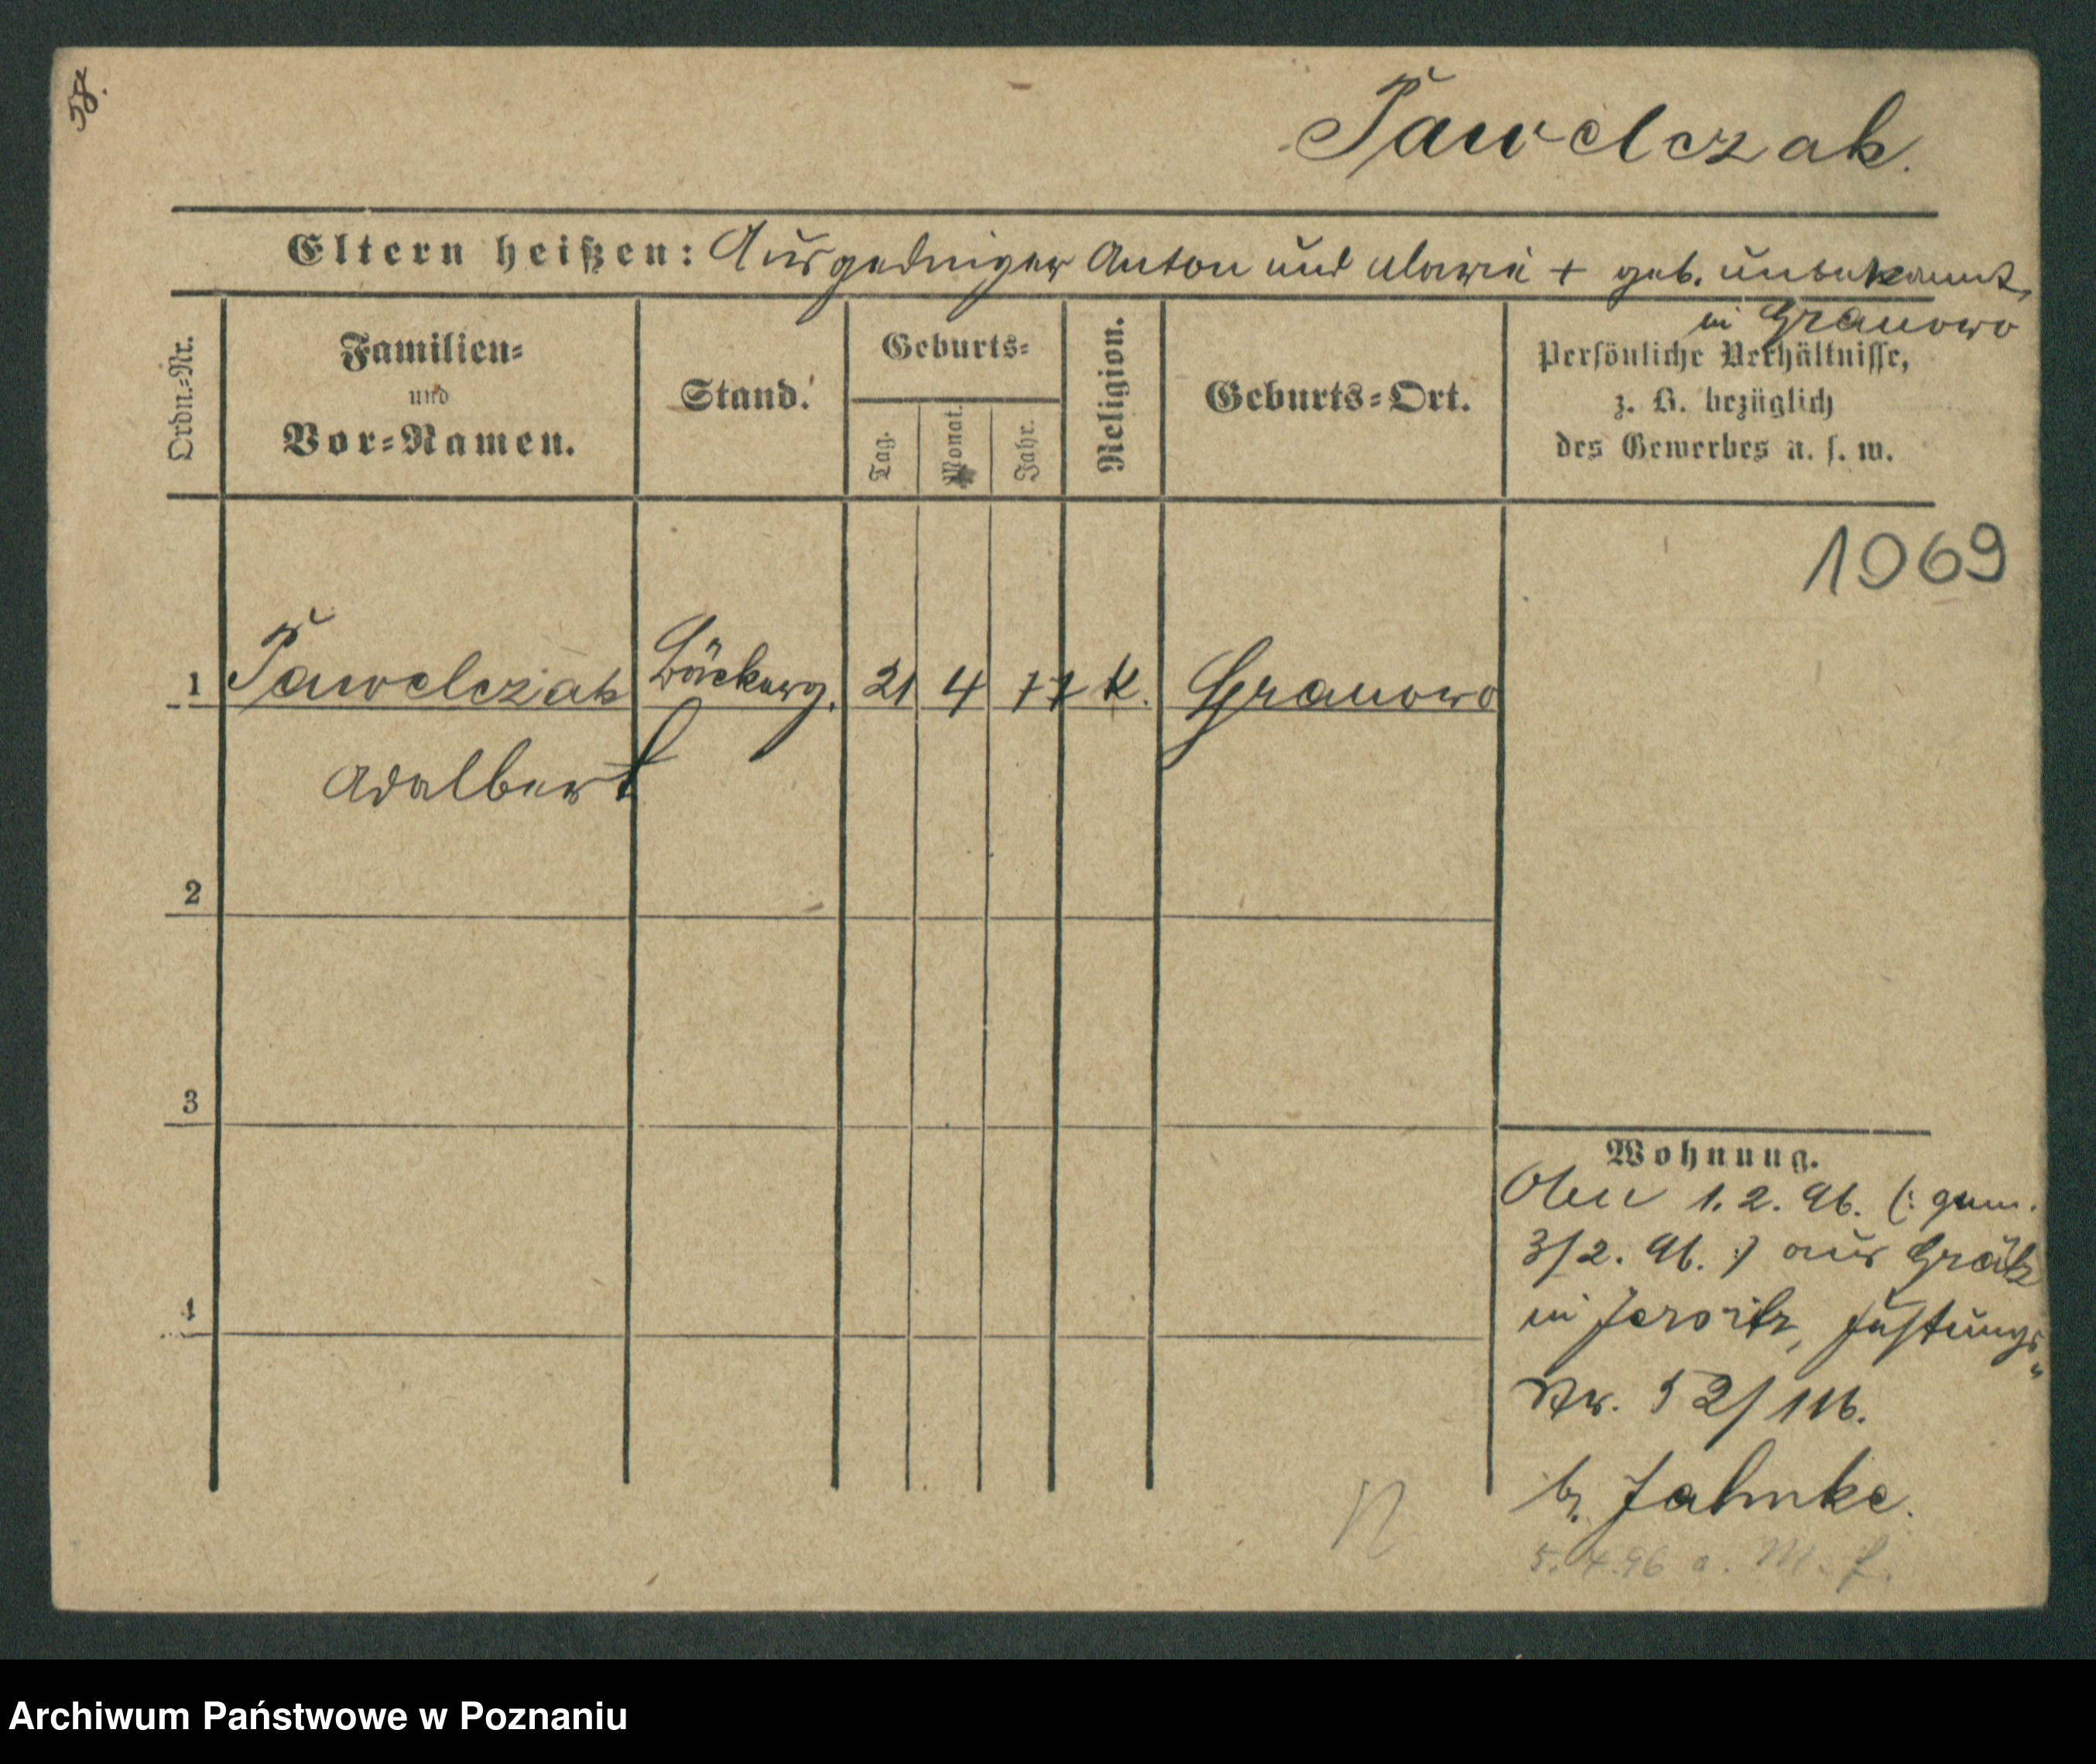 58.
Pawelczak.
Eltern heißen: Ausgedinger Anton und Marie + geb. unbekannt,
in Granowo
Ordn.=Nr.
Familien=
und
Vor=Namen.
Stand.
Geburts=
Tag.
Monat.
Jahr.
Religion.
Geburts=Ort.
Persönliche Verhältnisse,
z. B. bezüglich
des Gewerbes u. s. w.
1069
1 Pawelczak Bäckerg. 21 4 77 K. Granowo
Adalbert
2
3
4
Wohnung.
1. 2. 96. (: gem.
3/2. 96. :) aus Grätz
in Jersitz, Festungs=
Nr. 52/116.
b. Jahnke.
N
5. 4. 96 a. M. f.
Archiwum Państwowe w Poznaniu